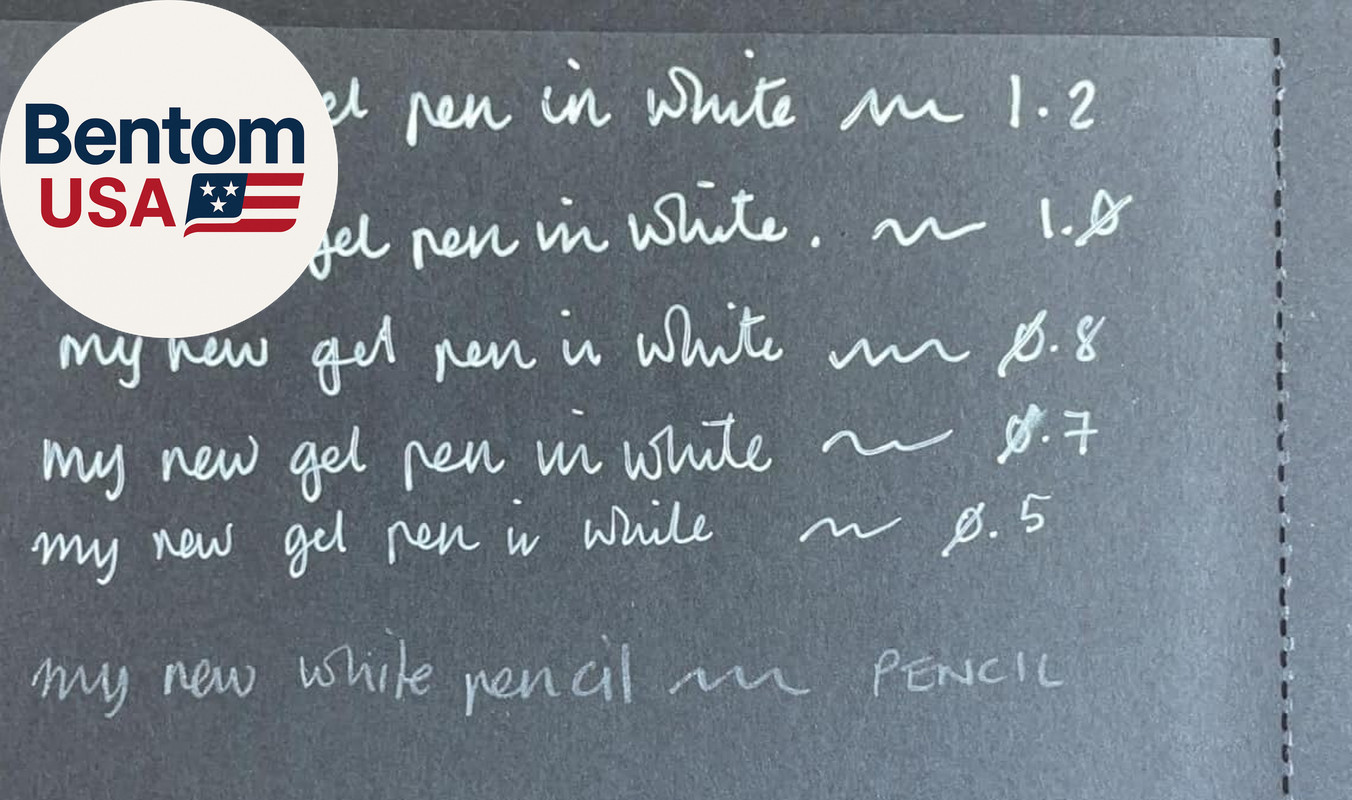 Bentom
USA
gel pen in white 1.2
gel pen in white. 1.0
my new gel pen in white 0.8
my new gel pen in white 0.7
my new gel pen in white 0.5
my new white pencil PENCIL